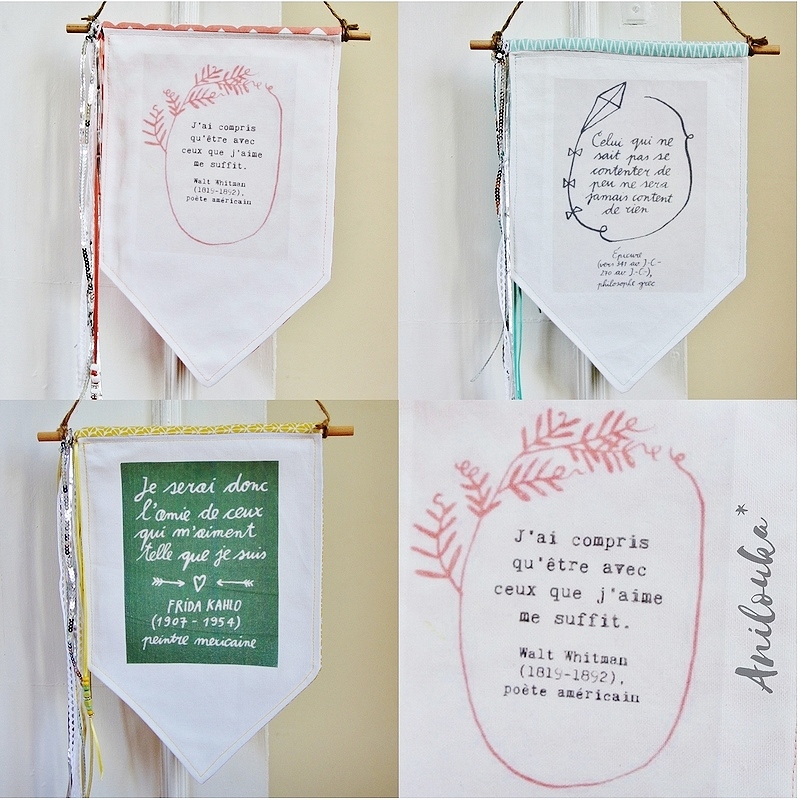 J'ai compris
qu'être avec
ceux que j'aime
me suffit.
Walt Whitman
(1819-1892),
poète américain
Celui qui ne
sait pas se
contenter de
peu ne sera
jamais content
de rien
Épicure
(vers 341 av. J.-C.-
270 av. J.-C.),
philosophe grec
Je serai donc
l'amie de ceux
qui m'aiment
telle que je suis
FRIDA KAHLO
(1907 - 1954)
peintre mexicaine
J'ai compris
qu'être avec
ceux que j'aime
me suffit.
Walt Whitman
(1819-1892),
poète américain
Anilouka*